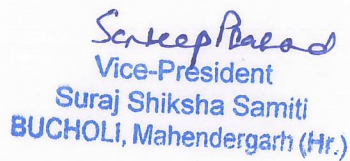 Sandeep Prasad
Vice-President
Suraj Shiksha Samiti
BUCHOLI, Mahendergarh (Hr.)